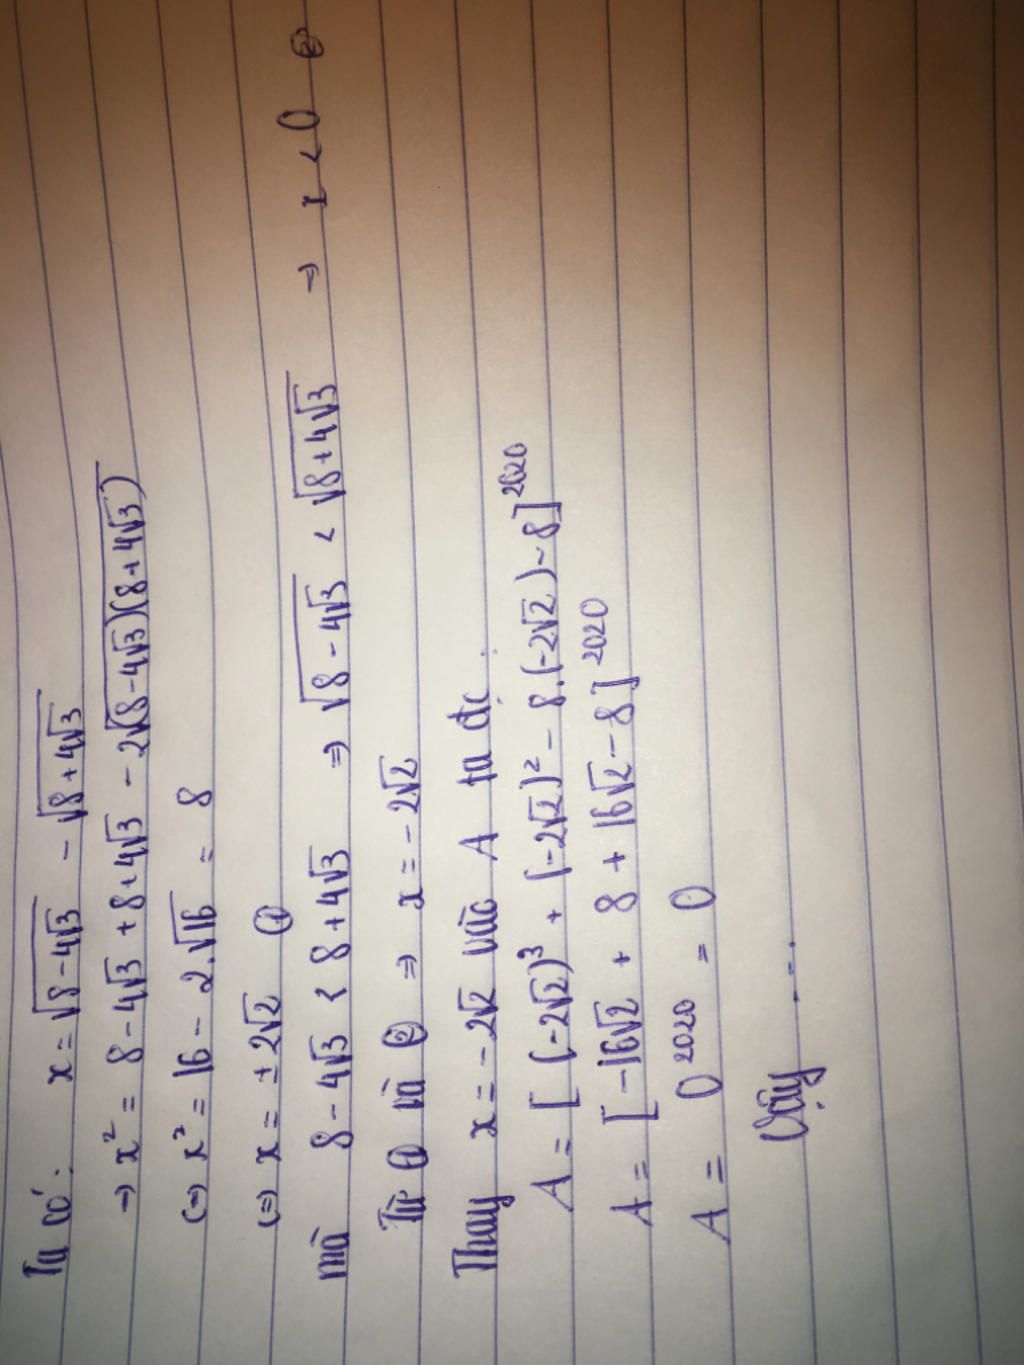 Ta có: x = √(8-4√3) - √(8+4√3)
→ x² = 8 - 4√3 + 8+4√3 - 2√((8-4√3)(8+4√3))
(=) x² = 16 - 2.√16 = 8
(=) x = ± 2√2 ①
mà 8 - 4√3 < 8 + 4√3 ⇒ √(8 - 4√3) < √(8+4√3) → x < 0 ②
Từ ① và ② ⇒ x = - 2√2
Thay x = - 2√2 vào A ta đc:
A = [(-2√2)³ + (-2√2)² - 8.(-2√2) - 8]²⁰²⁰
A = [-16√2 + 8 + 16√2 - 8]²⁰²⁰
A = 0²⁰²⁰ = 0
Vậy ....